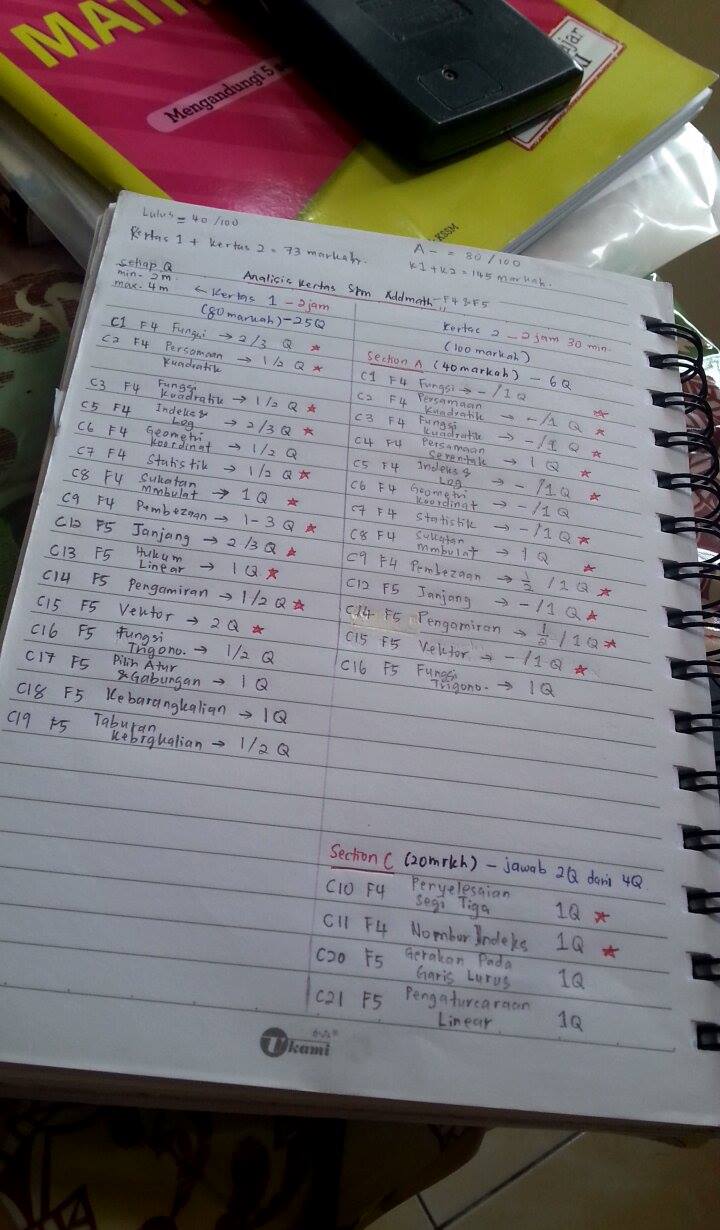 MAT
Mengandungi 5
KSSM
Lulus = 40/100
Kertas 1 + Kertas 2 = 73 markah.
A- = 80/100
K1+K2 = 145 markah.
Setiap Q
min- 2m
max. 4m
Analisis Kertas Spm Addmath - F4 & F5
← Kertas 1 - 2jam
(80markah) - 25Q
C1 F4 Fungsi → 2/3 Q ★
C2 F4 Persamaan Kuadratik → 1/2 Q ★
C3 F4 Fungsi Kuadratik → 1/2 Q ★
C5 F4 Indeks & Log → 2/3 Q ★
C6 F4 Geometri Koordinat → 1/2 Q
C7 F4 Statistik → 1/2 Q ★
C8 F4 Sukatan mmbulat → 1Q ★
C9 F4 Pembezaan → 1-3 Q ★
C12 F5 Janjang → 2/3 Q ★
C13 F5 Hukum Linear → 1Q ★
C14 F5 Pengamiran → 1/2 Q ★
C15 F5 Vektor → 2Q ★
C16 F5 Fungsi Trigono. → 1/2 Q
C17 F5 Pilih Atur & Gabungan → 1Q
C18 F5 Kebarangkalian → 1Q
C19 F5 Taburan Kebrgkalian → 1/2 Q
Kertas 2 - 2 jam 30 min.
(100markah)
Section A (40markah) - 6Q
C1 F4 Fungsi → -/1Q ★
C2 F4 Persamaan Kuadratik → -/1Q ★
C3 F4 Fungsi Kuadratik → -/1Q ★
C4 F4 Persamaan Serentak → 1Q ★
C5 F4 Indeks & Log → -/1Q ★
C6 F4 Geometri Koordinat → -/1Q
C7 F4 Statistik → -/1Q ★
C8 F4 Sukatan mmbulat → 1Q ★
C9 F4 Pembezaan → 1/2 /1Q ★
C12 F5 Janjang → -/1Q ★
C14 F5 Pengamiran → 1/2 /1Q ★
C15 F5 Vektor → -/1Q ★
C16 F5 Fungsi Trigono. → 1Q
Section C (20mrkh) - jawab 2Q dari 4Q
C10 F4 Penyelesaian Segi Tiga 1Q ★
C11 F4 Nombor Indeks 1Q ★
C20 F5 Gerakan Pada Garis Lurus 1Q
C21 F5 Pengaturcaraan Linear 1Q
kami